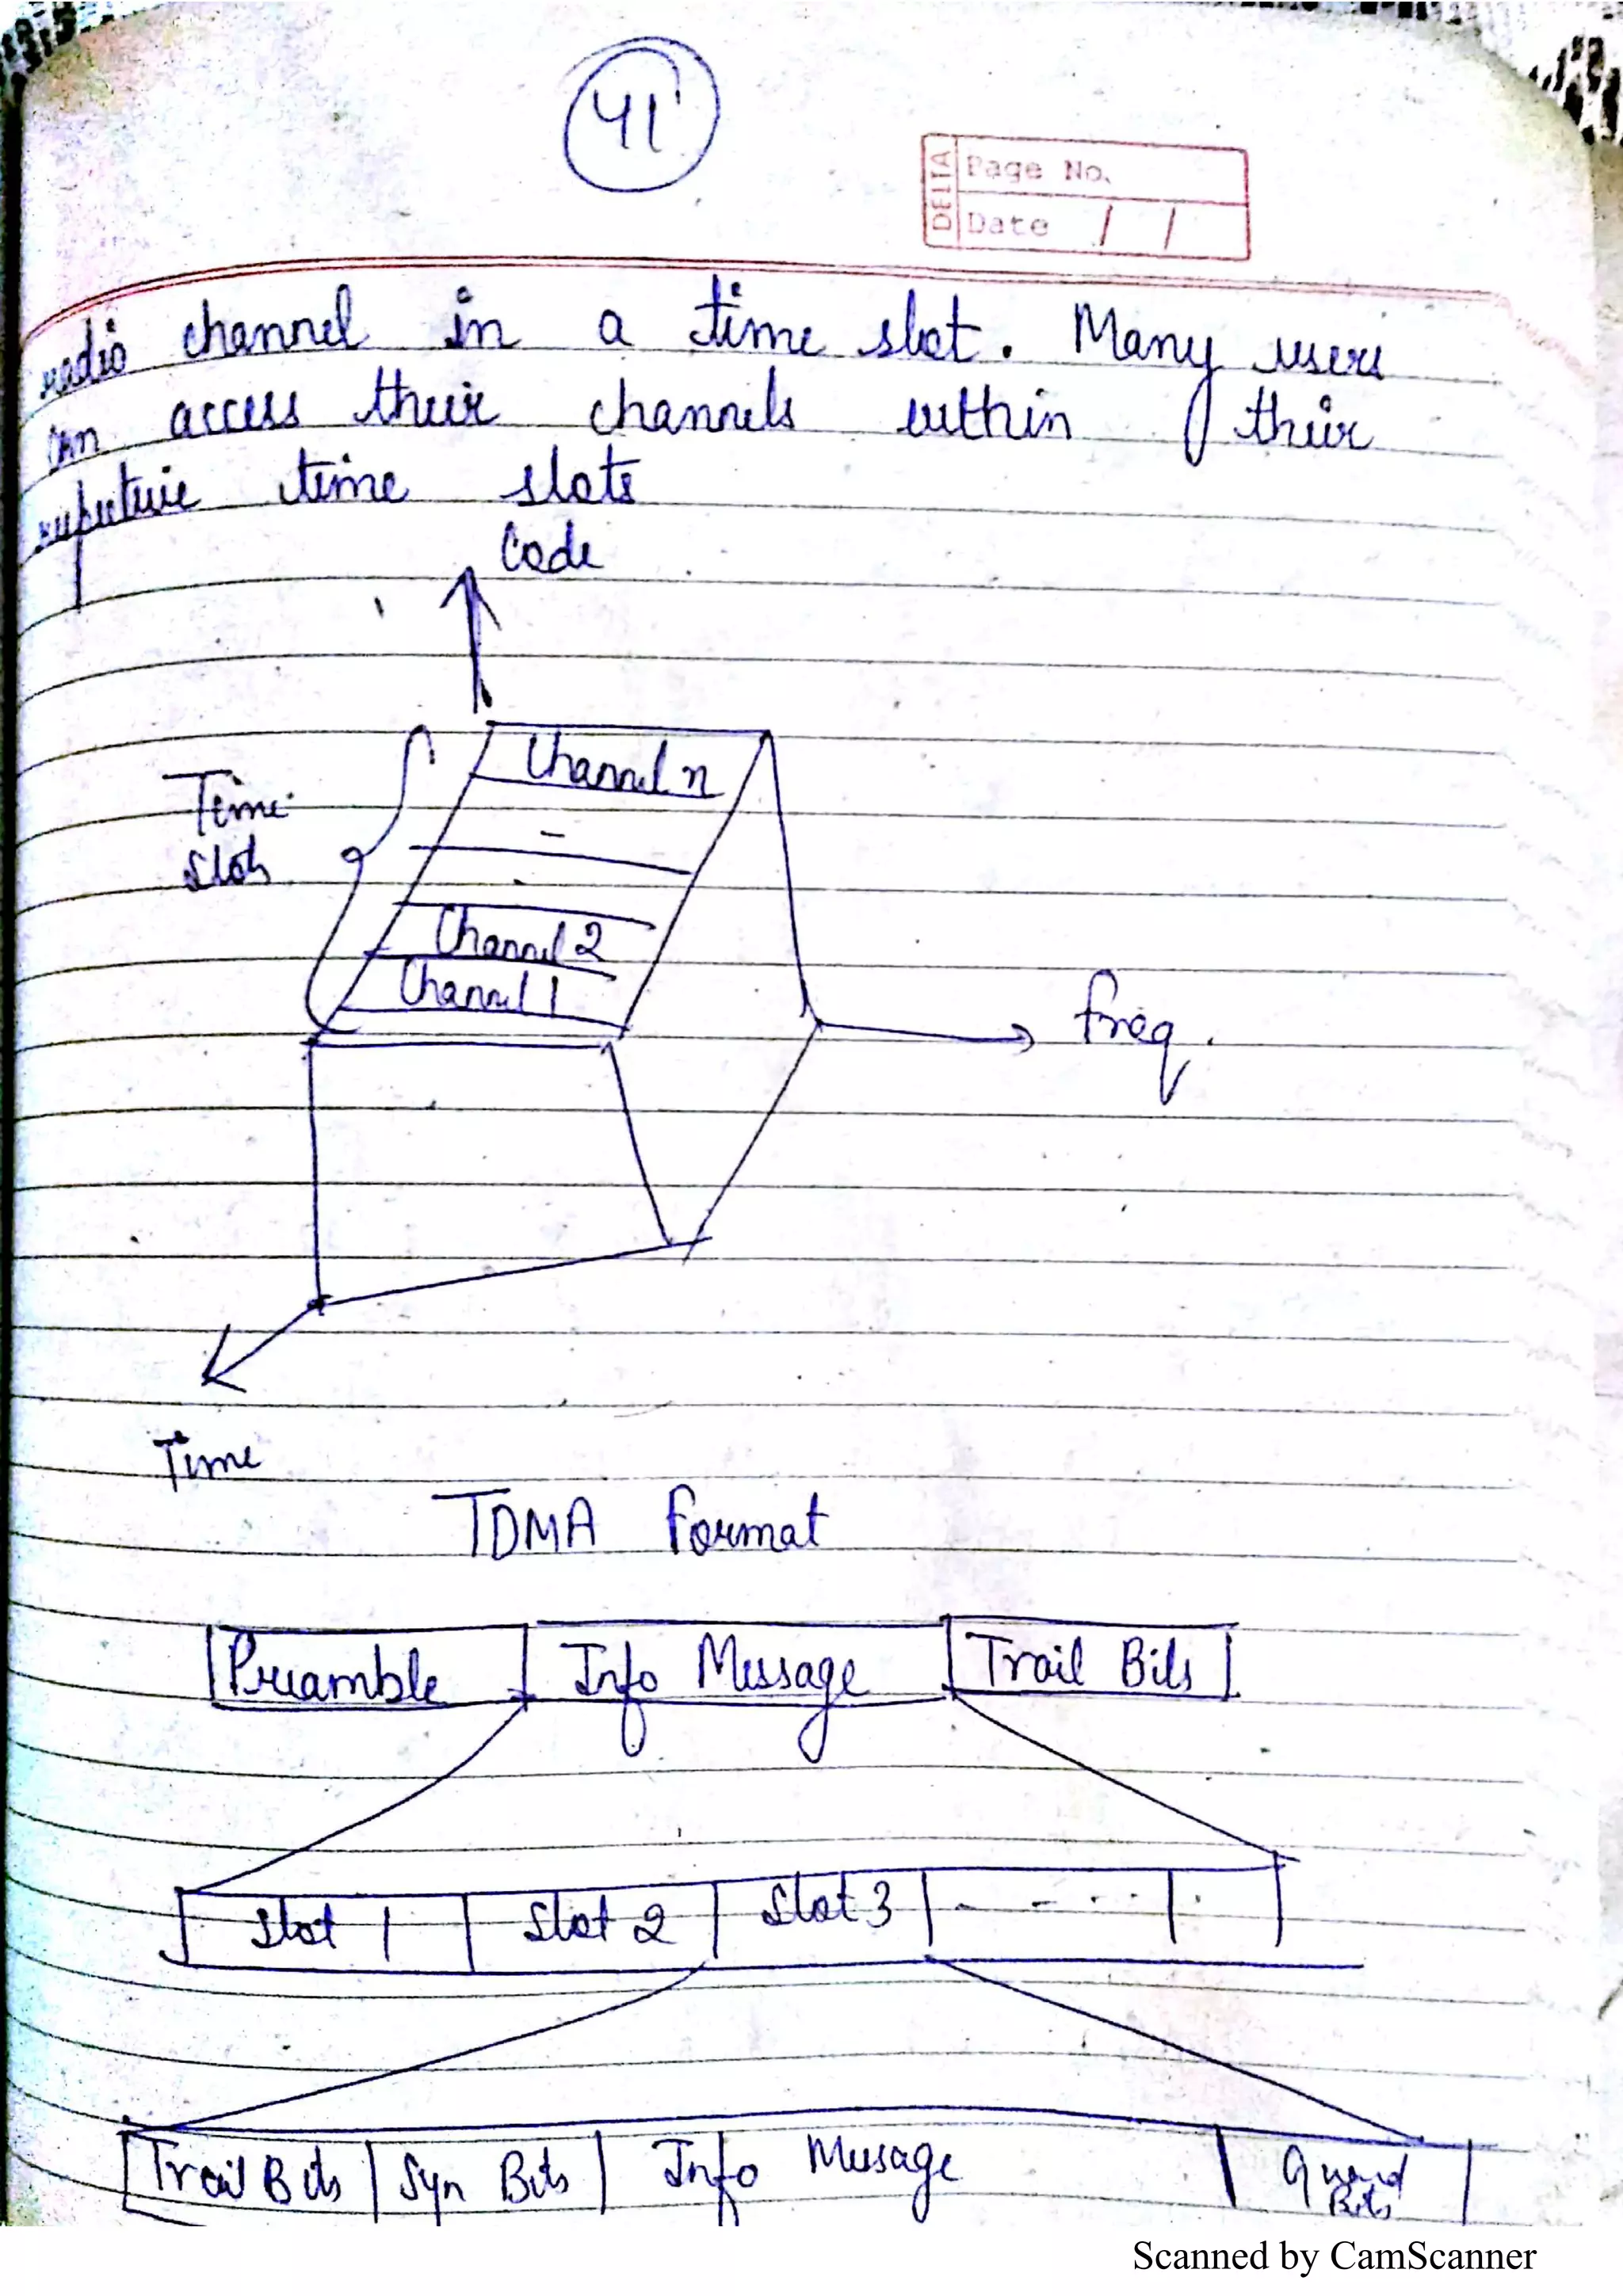 41
DELTA
Page No.
Date / /
radio channel in a time slot. Many users
can access their channels within their
respective time slots
Code
Channel n
Time
slots
Channel 2
Channel 1
freq.
Time
TDMA format
Preamble Info Message Trail Bits
slot 1 slot 2 slot 3
Trail Bits Syn Bits Info Message Guard
Bits
Scanned by CamScanner